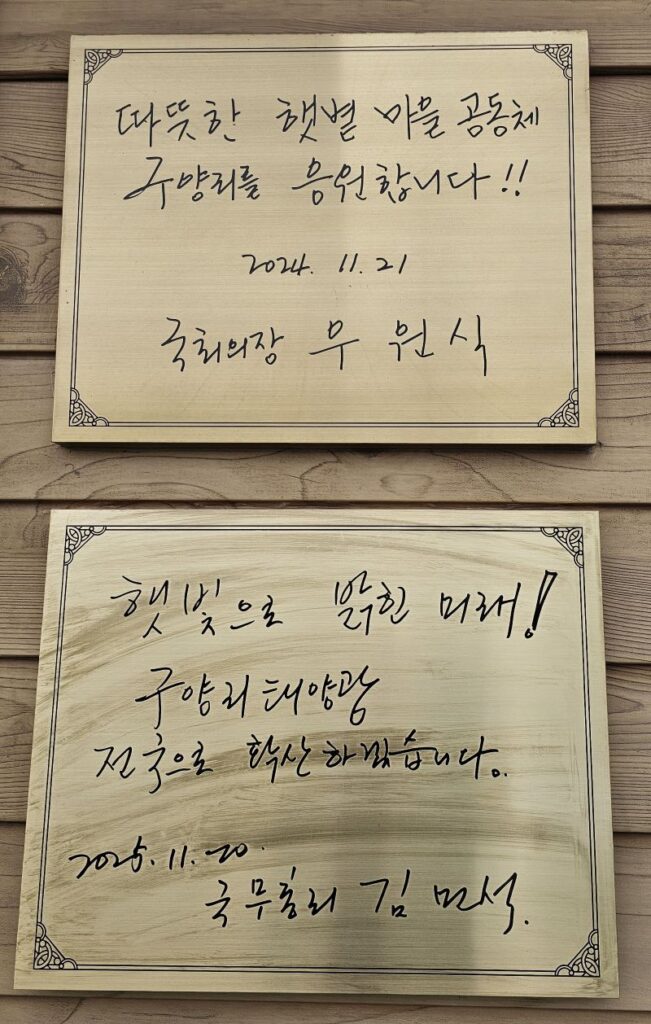 따뜻한 햇볕 마을 공동체
구양리를 응원합니다!!
2024. 11. 21
국회의장 우 원 식
햇빛으로 밝힌 미래!
구양리 태양광
전국으로 확산하겠습니다.
2025. 11. 20.
국무총리 김 민석.